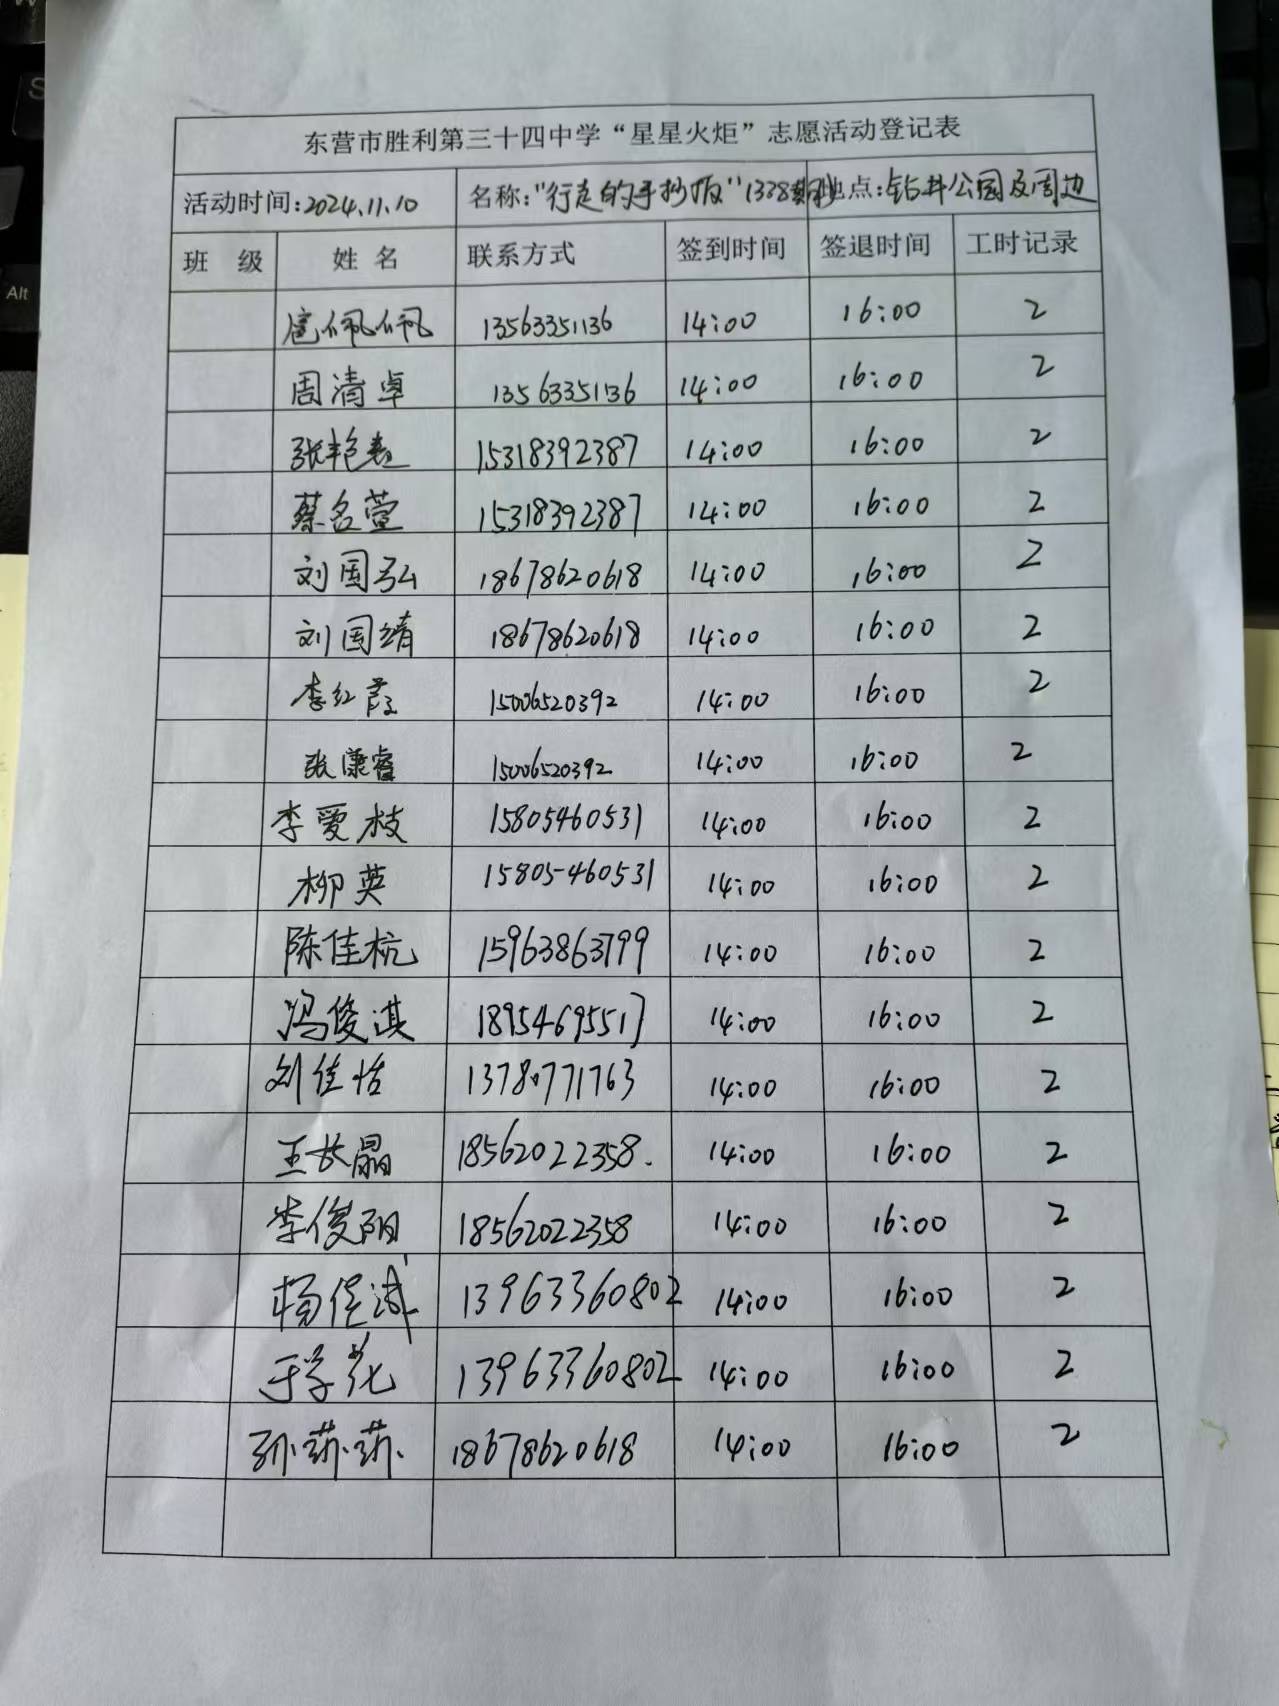 东营市胜利第三十四中学“星星火炬”志愿活动登记表
活动时间:2024.11.10 名称:“行走的手抄报”1338期 地点:钻井公园及周边
班 级 姓 名 联系方式 签到时间 签退时间 工时记录
扈佩佩 13563351136 14:00 16:00 2
周清卓 13563351136 14:00 16:00 2
张艳 15318392387 14:00 16:00 2
蔡名萱 15318392387 14:00 16:00 2
刘国弘 18678620618 14:00 16:00 2
刘国靖 18678620618 14:00 16:00 2
李红霞 15006520392 14:00 16:00 2
张康睿 15006520392 14:00 16:00 2
李爱枝 15805460531 14:00 16:00 2
柳英 15805460531 14:00 16:00 2
陈佳杭 15963863799 14:00 16:00 2
冯俊淇 18954695517 14:00 16:00 2
刘佳恬 13780771763 14:00 16:00 2
王长晶 18562022358. 14:00 16:00 2
李俊阳 18562022358 14:00 16:00 2
杨佳诚 13963360802 14:00 16:00 2
于学花 13963360802 14:00 16:00 2
孙莎莎 18678620618 14:00 16:00 2
Alt